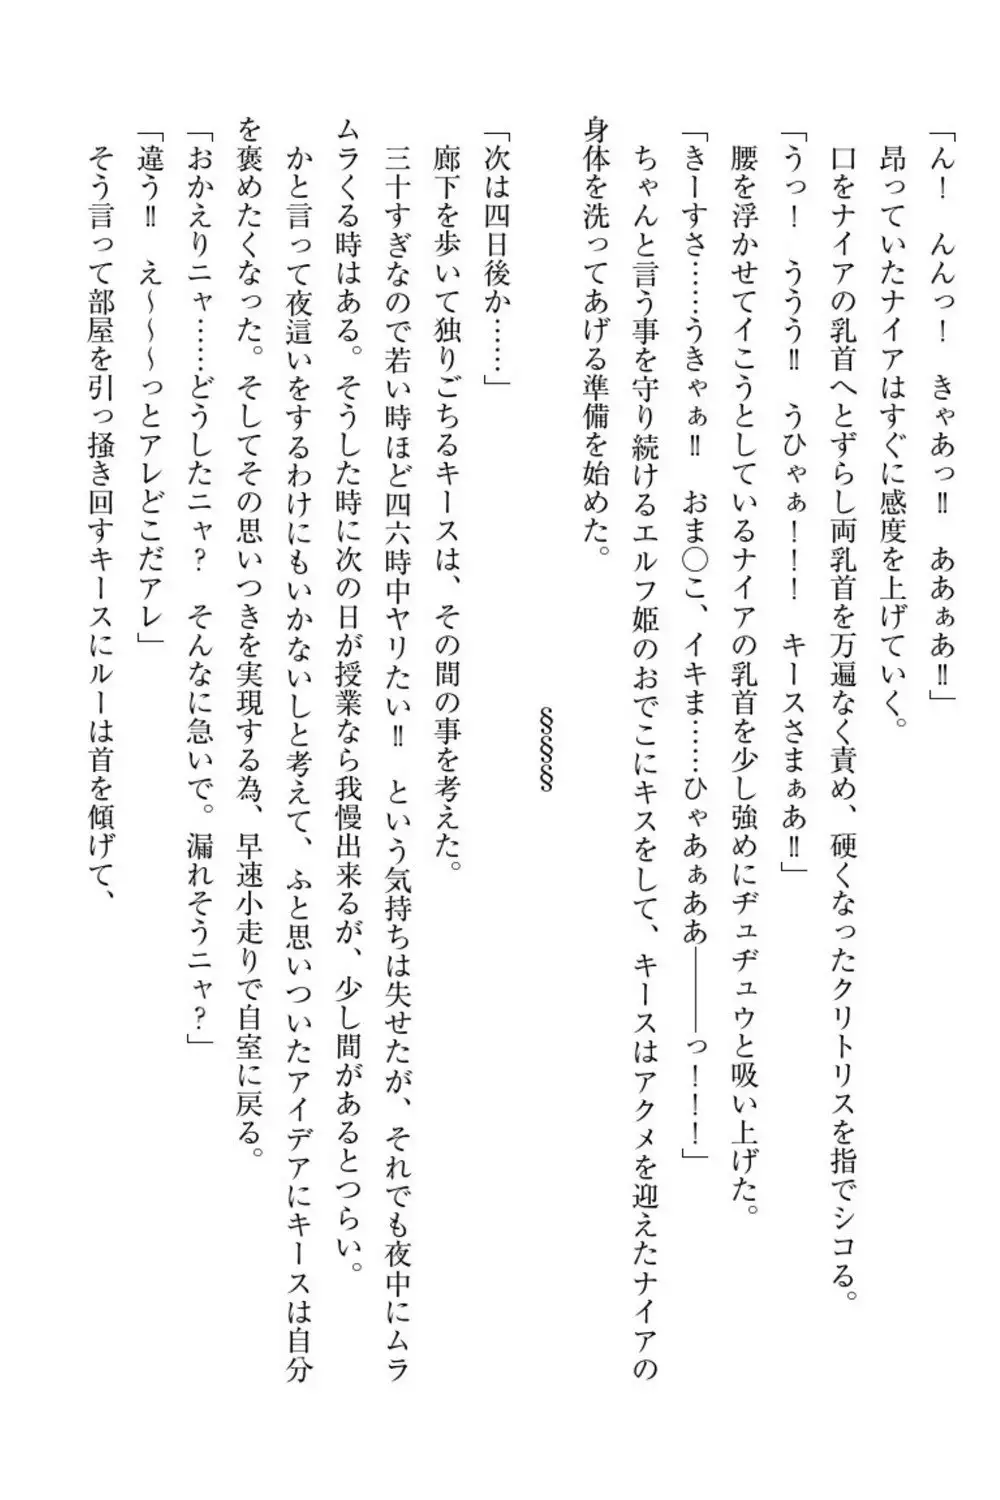 「ん！　んんっ！　きゃあっ‼　ああぁあ‼」
昂っていたナイアはすぐに感度を上げていく。
口をナイアの乳首へとずらし両乳首を万遍なく責め、硬くなったクリトリスを指でシコる。
「うっ！　ううう‼　うひゃぁ！！！　キースさまぁあ‼」
腰を浮かせてイこうとしているナイアの乳首を少し強めにヂュヂュウと吸い上げた。
「きーすさ………うきゃぁ‼　おま〇こ、イキま……ひゃあぁああ———っ！！！」
ちゃんと言う事を守り続けるエルフ姫のおでこにキスをして、キースはアクメを迎えたナイアの
身体を洗ってあげる準備を始めた。
§§§
「次は四日後か……」
廊下を歩いて独りごちるキースは、その間の事を考えた。
三十すぎなので若い時ほど四六時中ヤリたい‼　という気持ちは失せたが、それでも夜中にムラ
ムラくる時はある。そうした時に次の日が授業なら我慢出来るが、少し間があるとつらい。
かと言って夜這いをするわけにもいかないしと考えて、ふと思いついたアイデアにキースは自分
を褒めたくなった。そしてその思いつきを実現する為、早速小走りで自室に戻る。
「おかえりニャ……どうしたニャ？　そんなに急いで。漏れそうニャ？」
「違う‼　え～～～っとアレどこだアレ」
そう言って部屋を引っ掻き回すキースにルーは首を傾げて、